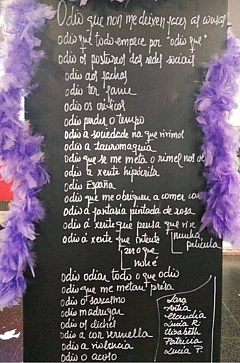 Odio que non me deixen facer as cousas
odio que todo empece por "odio que"
odio os postureos das redes sociais
odio aos fachos
odio ter fame
odio os críticos
odio perder o tempo
odio a sociedade na que vivimos
odio a tauromaquia
odio que se me meta o rimel nos ollos
odio a xente hipócrita
odio España
odio que me obriguen a comer
odio a fantasía pintada de rosa
odio a xente que pensa que vive
nunha película
odio a xente que intente
ser o que
non é
odio odiar todo o que odio
odio que me metan présa
odio o sarcasmo
odio madrugar
odio os
odio a cor vermella
odio a violencia
odio o acoso
Sara
Antía
Claudia
Lucía R
Elizabeth
Patricia
Lucía P.